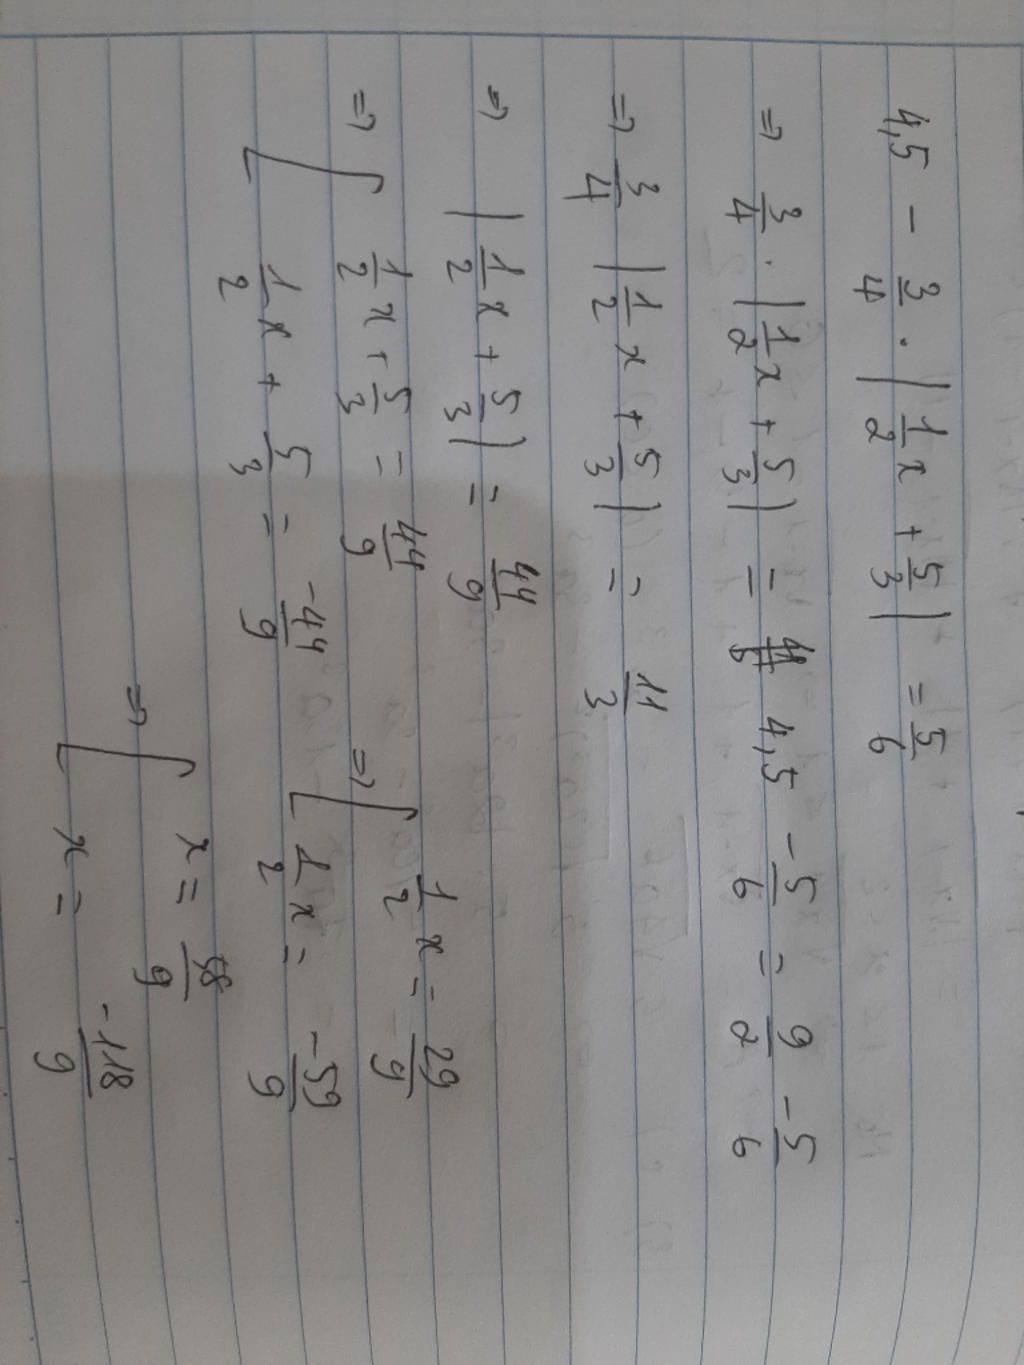 4,5 - 3/4 . |1/2 x + 5/3| = 5/6
=> 3/4 . |1/2 x + 5/3| = 4,5 - 5/6 = 9/2 - 5/6
=> 3/4 |1/2 x + 5/3| = 11/3
=> |1/2 x + 5/3| = 44/9
=> [ 1/2 x + 5/3 = 44/9
1/2 x + 5/3 = -44/9
=> [ 1/2 x = 29/9
1/2 x = -59/9
=> [ x = 58/9
x = -118/9